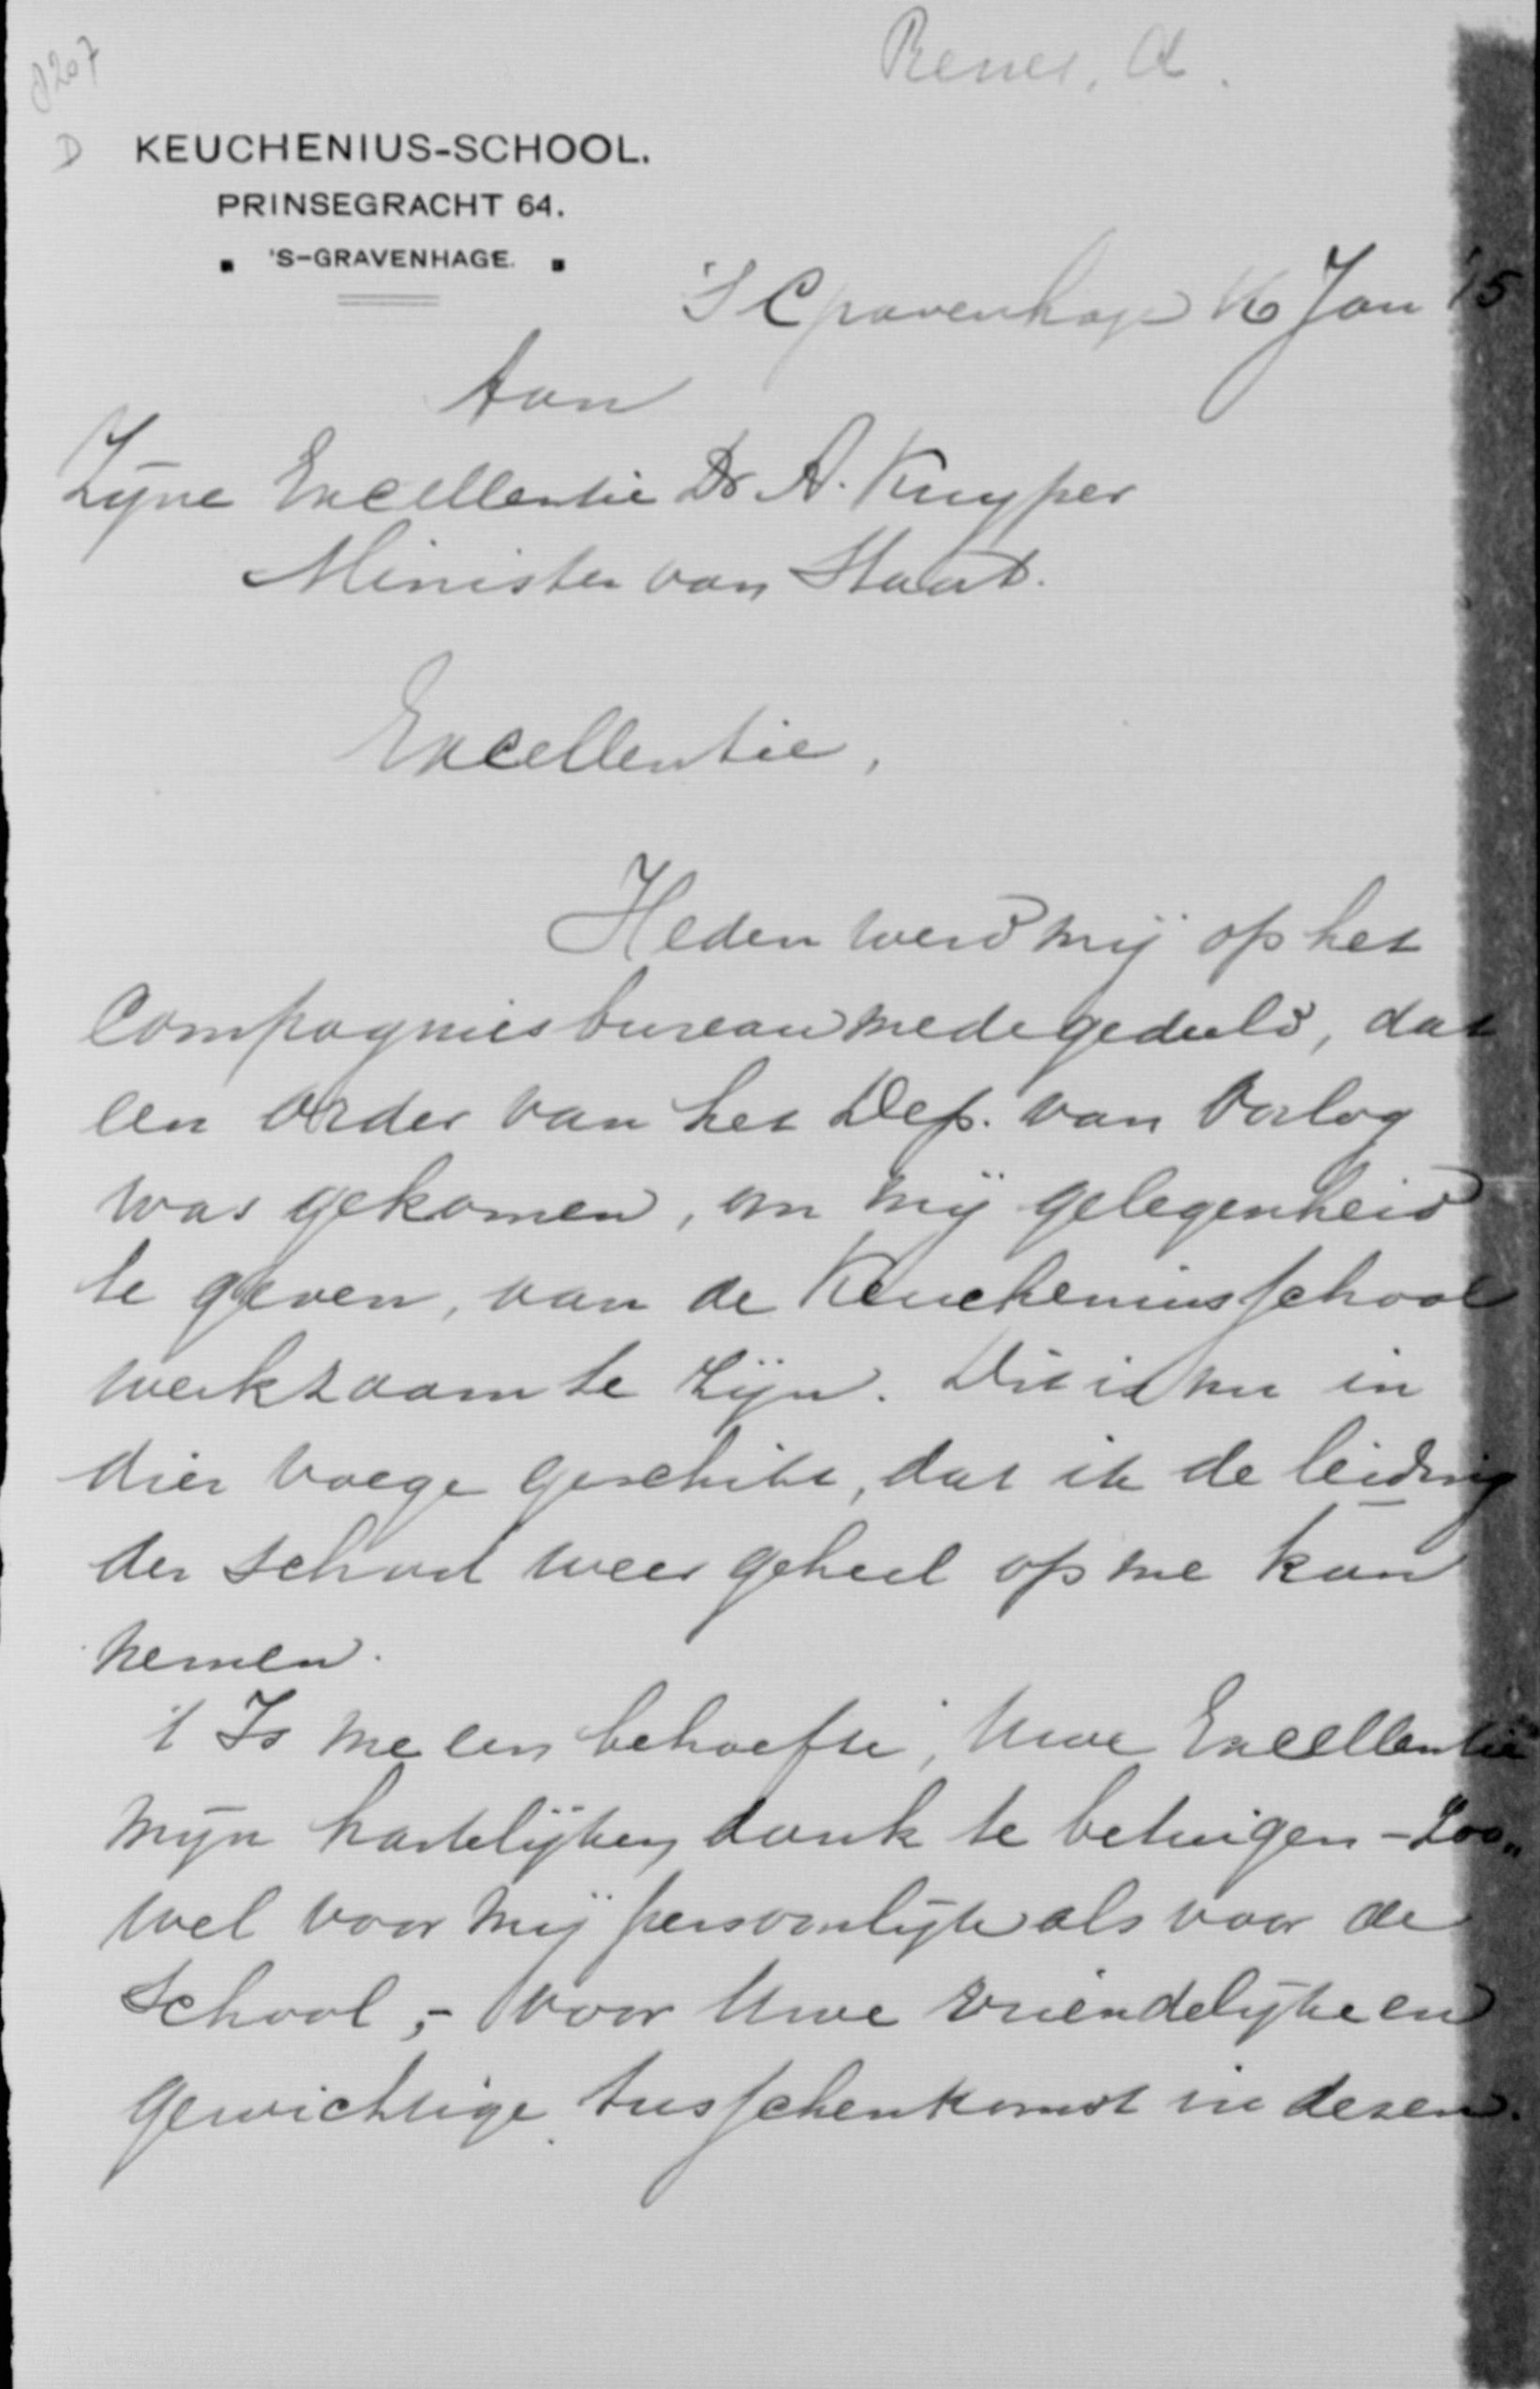 8207
D
KEUCHENIUS-SCHOOL.
PRINSEGRACHT 64.
'S-GRAVENHAGE.
'S Gravenhage 16 Jan '15
Aan
Zijne Excellentie Dr A. Kuyper
Minister van Staat.
Excellentie,
Heden werd mij op het
Compagniesbureau medegedeeld, dat
een order van het Dep. van Oorlog
was gekomen, om mij gelegenheid
te geven, aan de Keucheniusschool
werkzaam te zijn. Dit is nu in
dier voege geschikt, dat ik de leiding
der school weer geheel op me kan
nemen.
't Is me een behoefte, Uwe Excellentie
mijn hartelijken dank te betuigen - zoo„
wel voor mij persoonlijk als voor de
school, - voor Uwe vriendelijke en
gewichtige tusschenkomst in dezen.